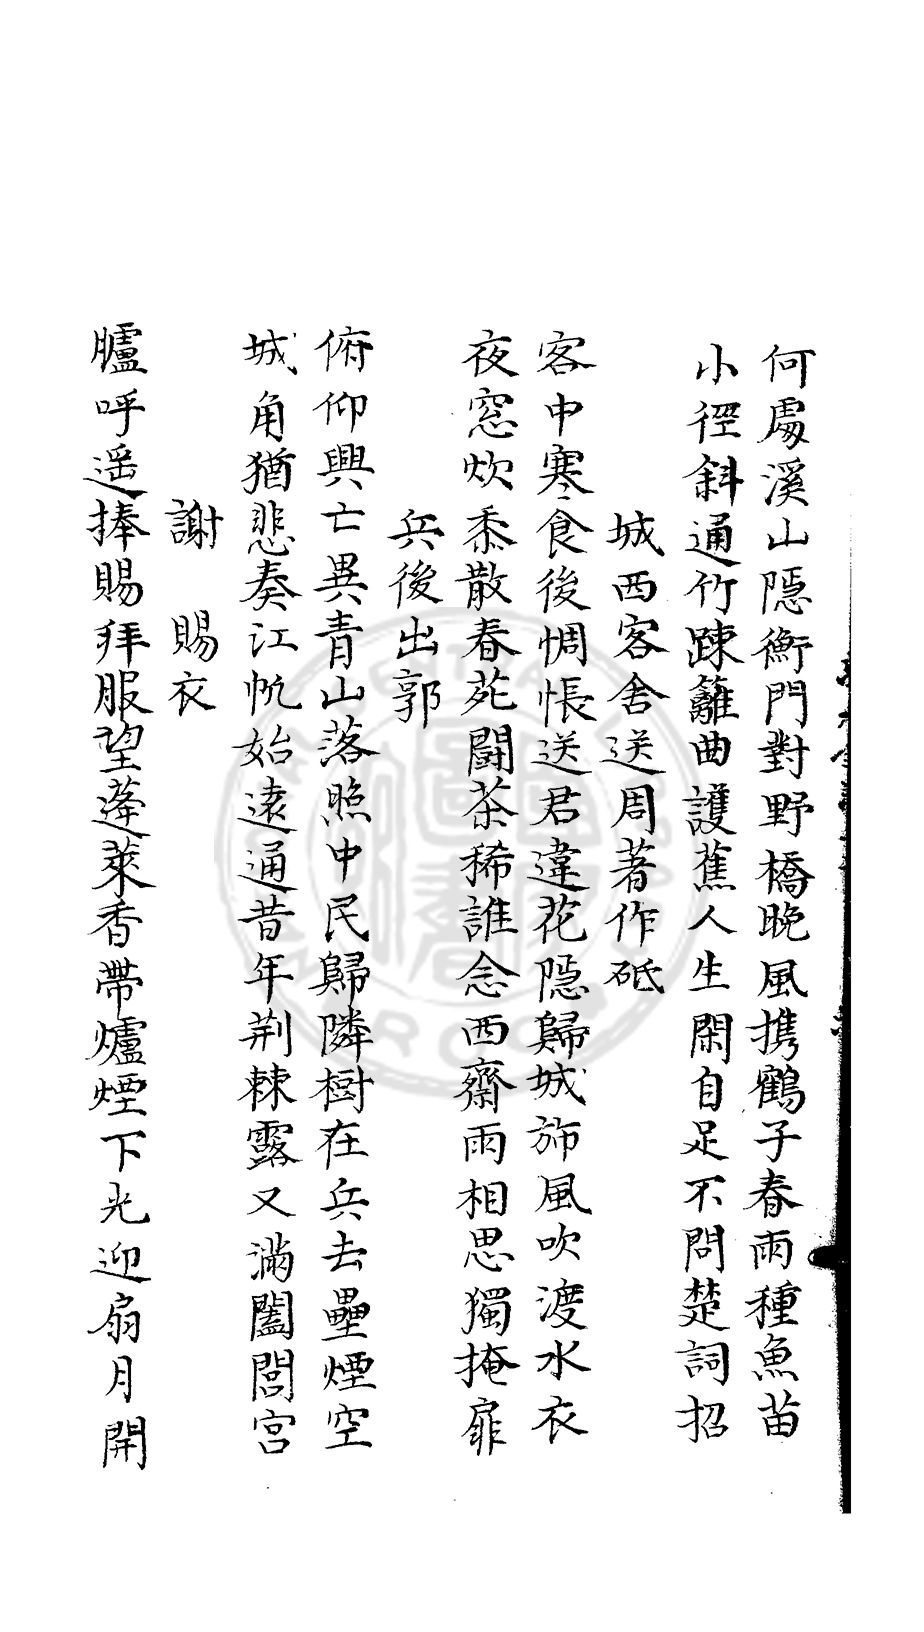 何處溪山隱衡門對野橋晚風携鶴子春雨種魚苗
小徑斜通竹踈籬曲護蕉人生閑自足不問楚詞招
城西客舍送周著作砥
客中寒食後惆悵送君違花隱歸城斾風吹渡水衣
夜窓炊黍散春苑鬪茶稀誰念西齋雨相思獨掩扉
兵後出郭
俯仰興亡異青山落照中民歸隣樹在兵去壘煙空
城角猶悲奏江帆始遠通昔年荆棘露又滿闔閭宮
謝賜衣
臚呼遥捧賜拜服望蓬萊香帶爐煙下光迎扇月開